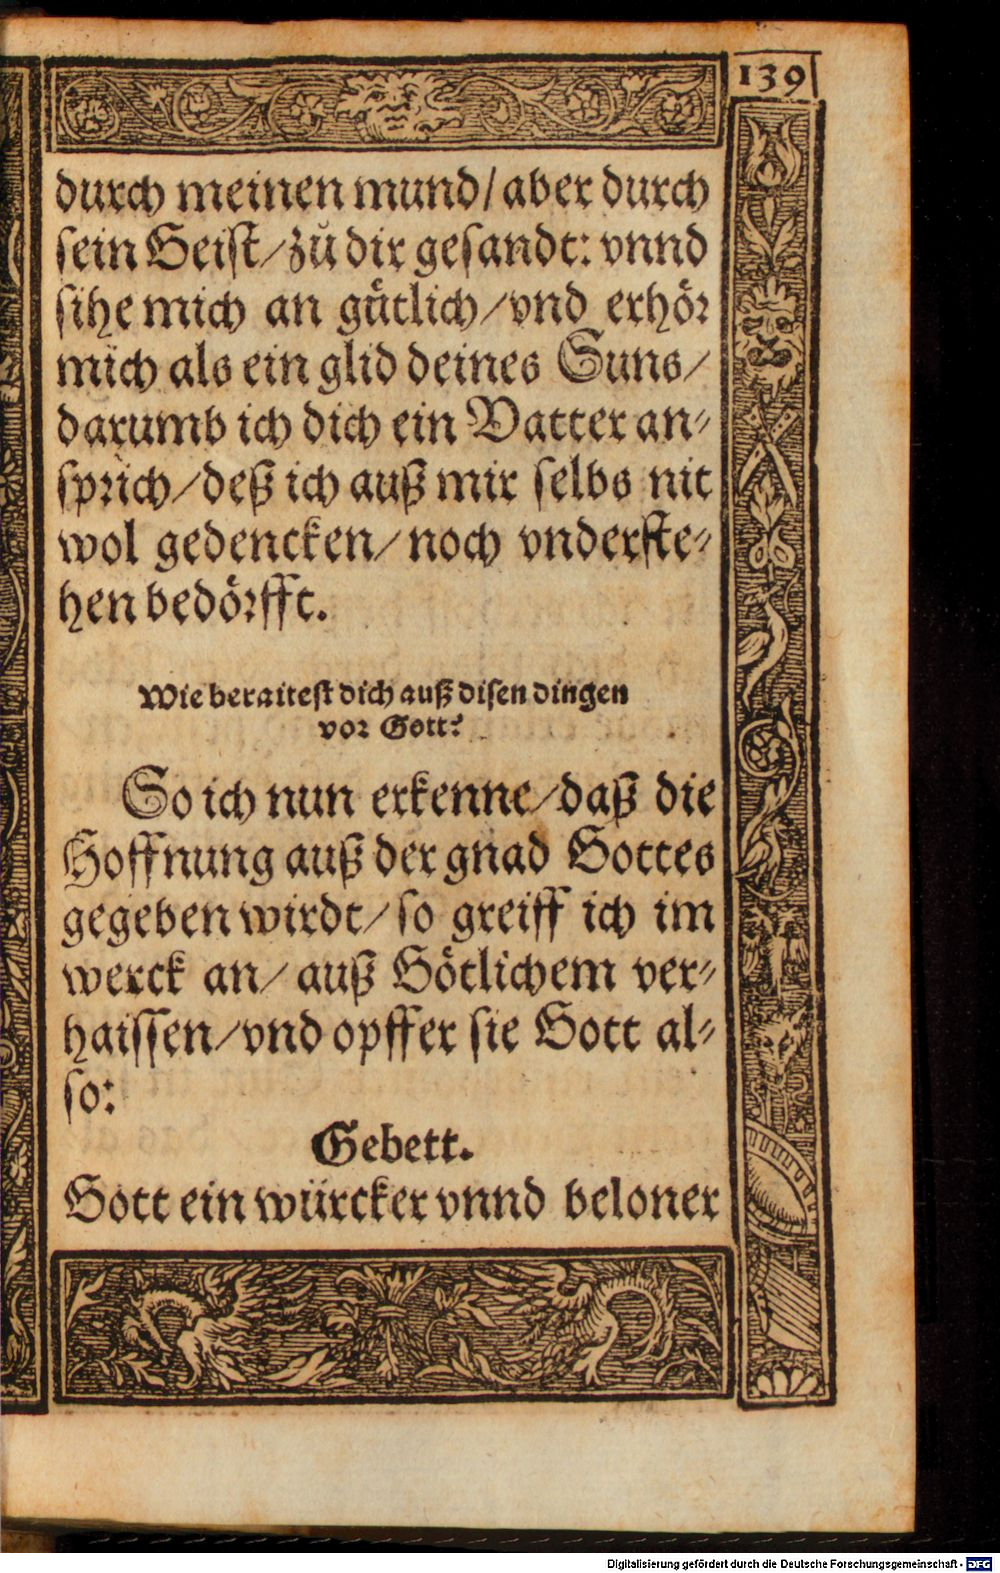 139
durch meinen mund/ aber durch
sein Geist/ zů dir gesandt: vnnd
sihe mich an gütlich/ vnd erhör
mich als ein glid deines Suns/
darumb ich dich ein Vatter an⸗
sprich/ deß ich auß mir selbs nit
wol gedencken/ noch vnderste⸗
hen bedörfft.
Wie beraitest dich auß disen dingen
vor Gott?
So ich nun erkenne/ daß die
Hoffnung auß der gnad Gottes
gegeben wirdt/ so greiff ich im
werck an/ auß Götlichem ver⸗
haissen/ vnd opffer sie Gott al⸗
so:
Gebett.
Gott ein würcker vnnd beloner
Digitalisierung gefördert durch die Deutsche Forschungsgemeinschaft - DFG